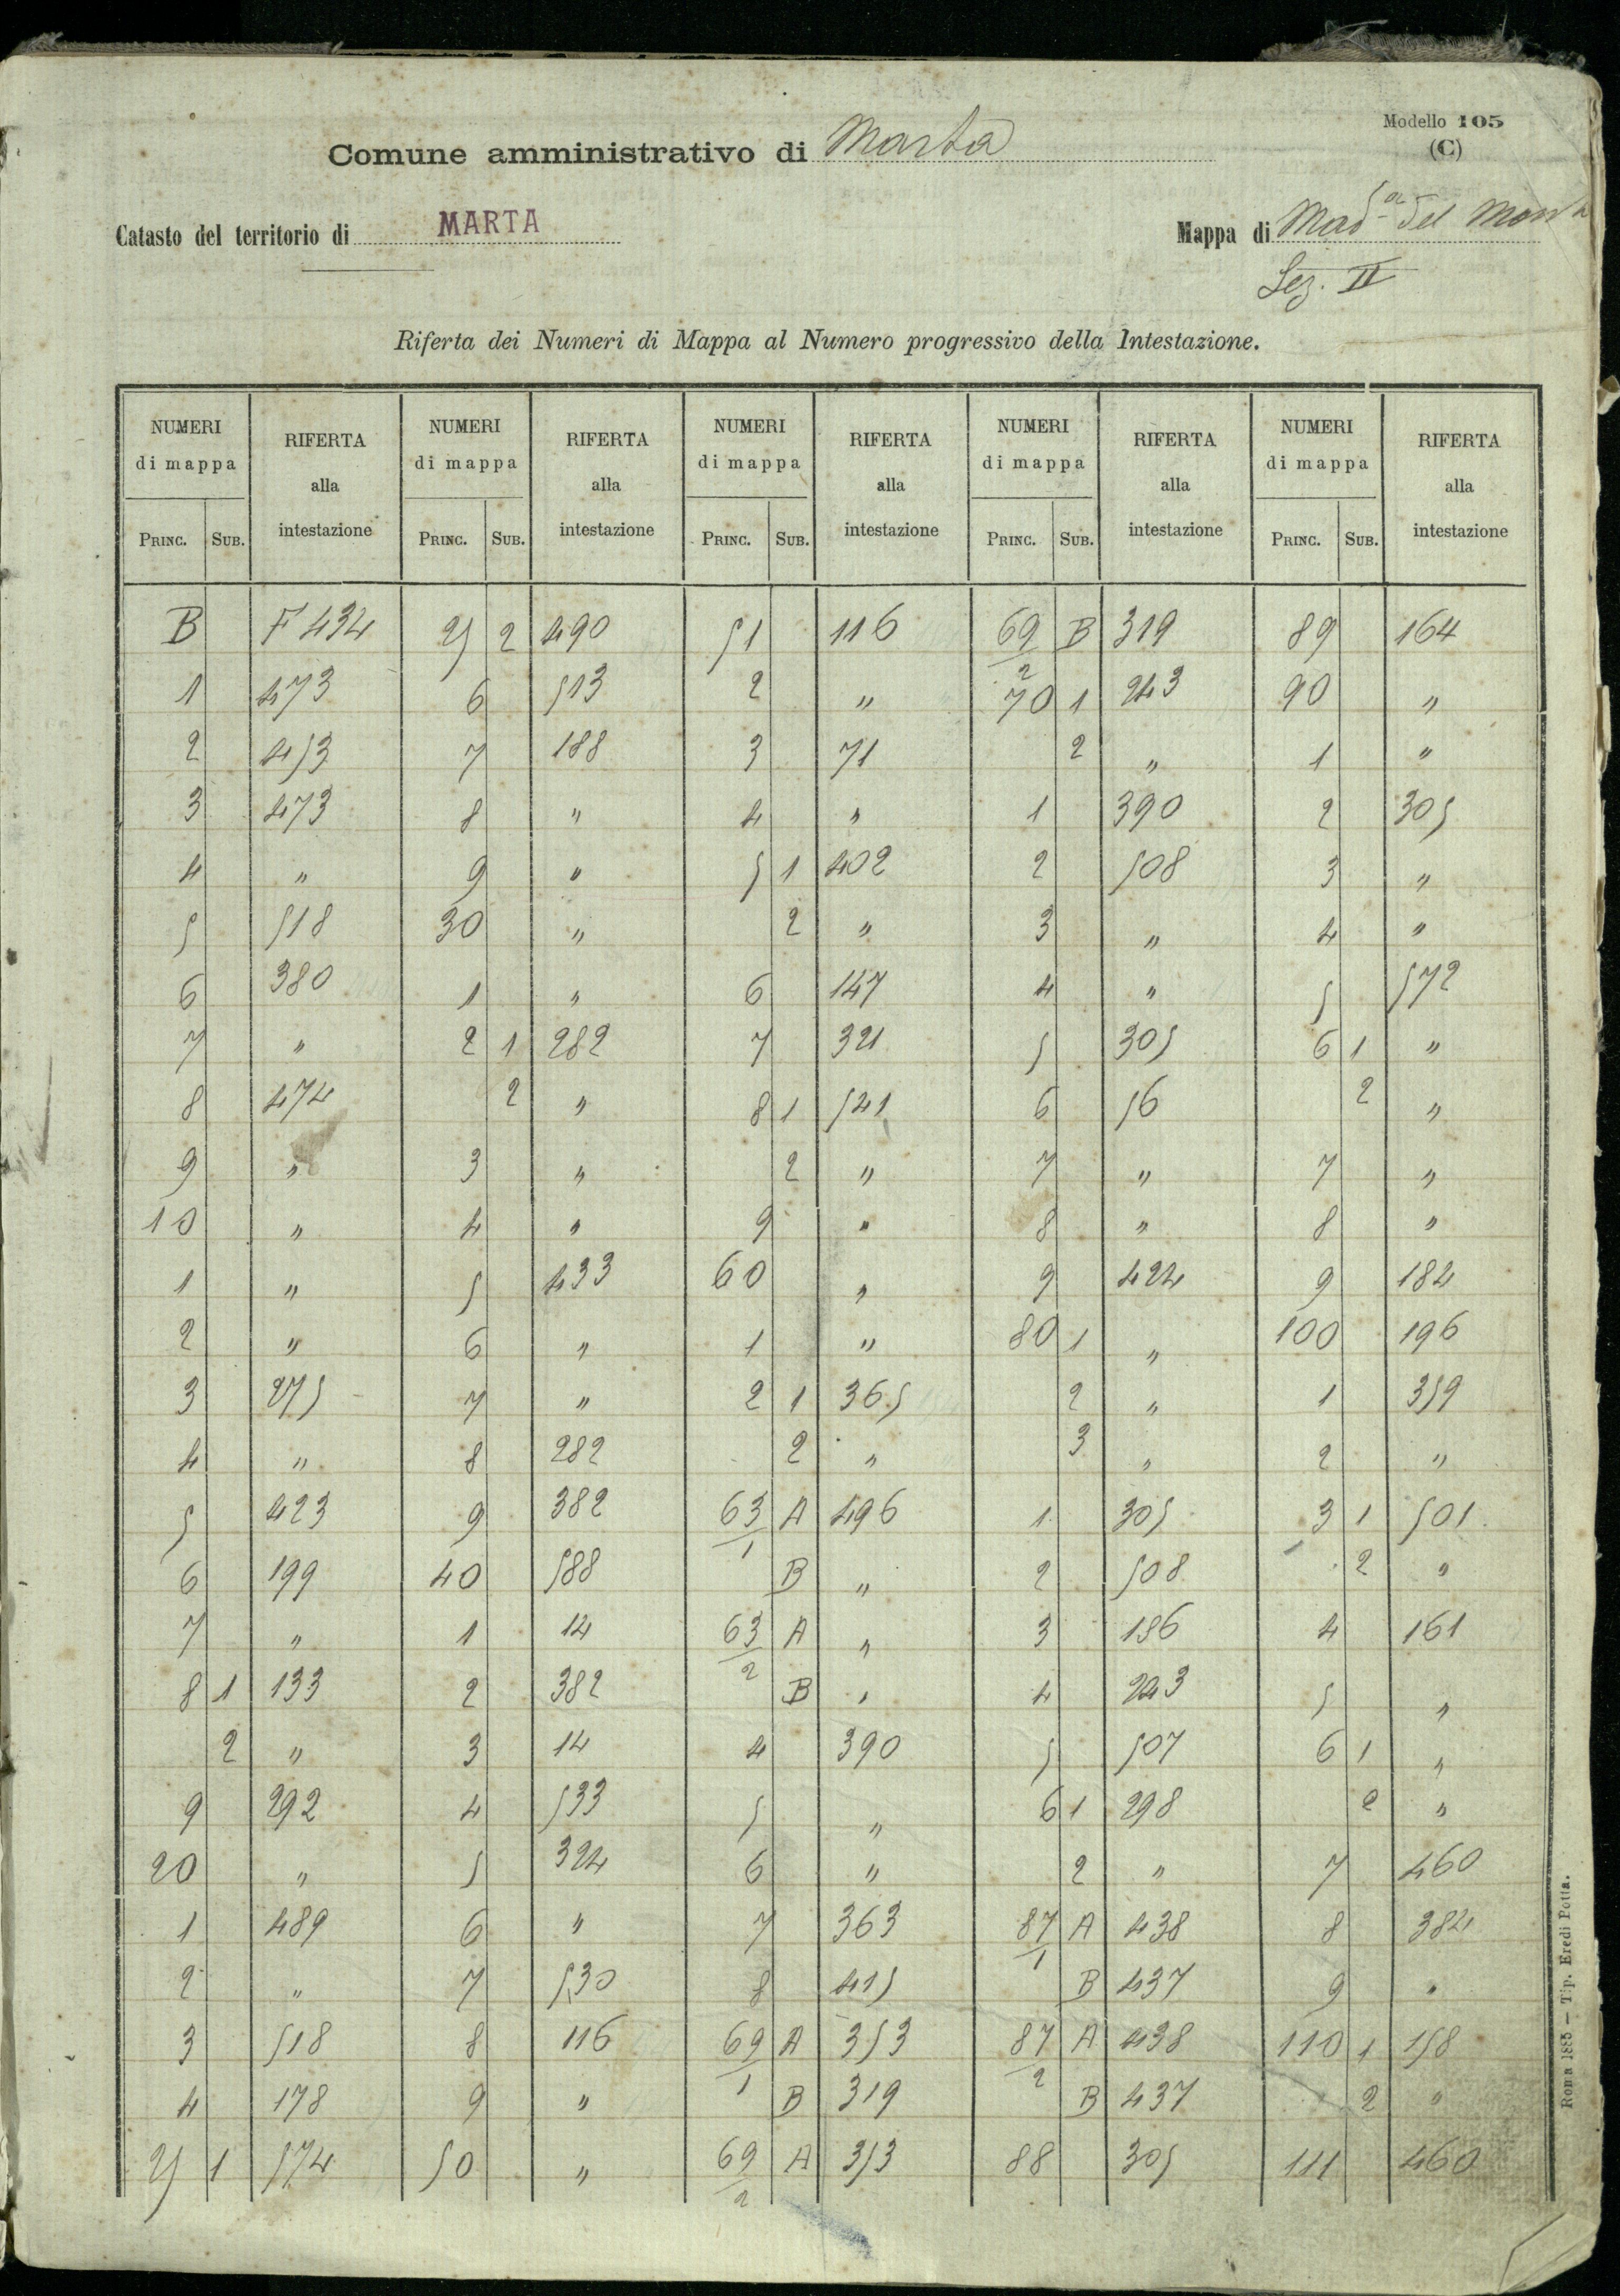 Modello 105
(C)
Comune amministrativo di Marta
Catasto del territorio di MARTA
Mappa di Mad.a del Monte
Sez. II
Riferta dei Numeri di Mappa al Numero progressivo della Intestazione.
NUMERI di mappa RIFERTA alla intestazione NUMERI di mappa RIFERTA alla intestazione NUMERI di mappa RIFERTA alla intestazione NUMERI di mappa RIFERTA alla intestazione NUMERI di mappa RIFERTA alla intestazione
PRINC. SUB. PRINC. SUB. PRINC. SUB. PRINC. SUB. PRINC. SUB.
B F 434 25 2 490 51 116 69/2 B 319 89 164
1 473 6 513 2 " 70 1 243 90 "
2 453 7 188 3 71 2 " 1 "
3 473 8 " 4 " 1 390 2 305
4 " 9 " 5 1 402 2 508 3 "
5 518 30 " 2 " 3 " 4 "
6 380 1 " 6 147 4 " 5 572
7 " 2 1 282 7 321 5 305 6 1 "
8 474 2 " 8 1 541 6 56 2 "
9 " 3 " 2 " 7 " 7 "
10 " 4 " 9 " 8 " 8 "
1 " 5 433 60 " 9 424 9 184
2 " 6 " 1 " 80 1 " 100 196
3 275 7 " 2 1 365 2 " 1 359
4 " 8 282 2 " 3 " 2 "
5 423 9 382 63/1 A 496 1 305 3 1 501
6 199 40 588 B " 2 508 2 "
7 " 1 14 63/2 A " 3 186 4 161
8 1 133 2 382 B " 4 243 5 "
2 " 3 14 4 390 5 507 6 1 "
9 292 4 533 5 " 6 1 298 2 "
20 " 5 324 6 " 2 " 7 460
1 489 6 " 7 363 87/1 A 438 8 384
2 " 7 530 8 415 B 437 9 "
3 518 8 116 69/1 A 353 87/2 A 438 110 1 158
4 178 9 " B 319 B 437 2 "
25 1 574 50 " 69/2 A 353 88 305 111 460
Roma 1885 — Tip. Eredi Botta.